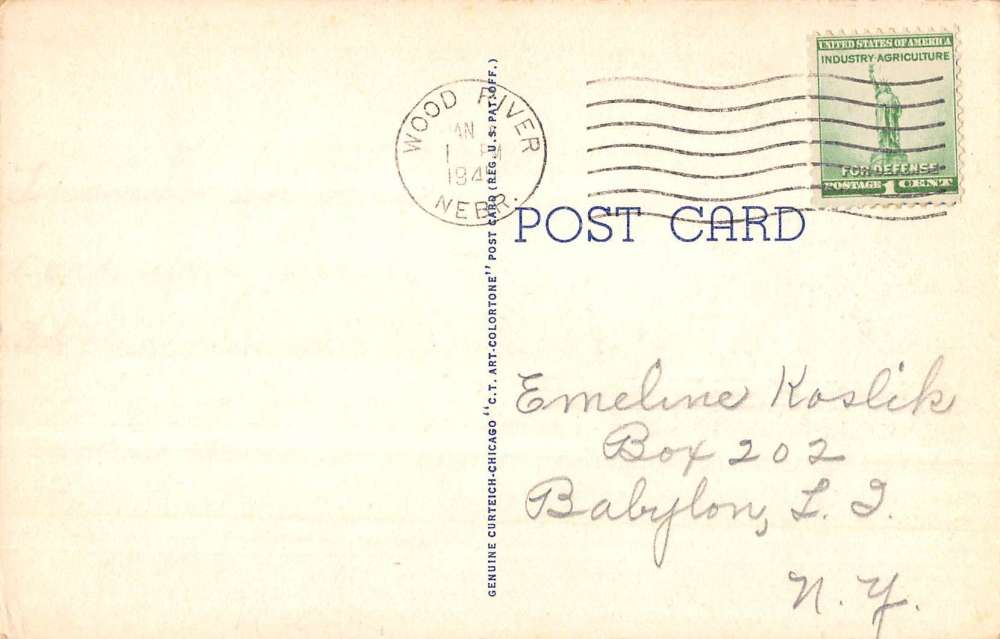 UNITED STATES OF AMERICA
INDUSTRY AGRICULTURE
FOR DEFENSE
POSTAGE 1 CENT
WOOD RIVER
1 PM
NEBR.
POST CARD
GENUINE CURTEICH-CHICAGO "C.T. ART-COLORTONE" POST CARD (REG. U.S. PAT. OFF.)
Emeline Koslik
Box 202
Babylon, L. I.
N. Y.